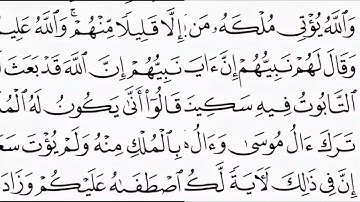 وَٱللَّهُ يُؤْتِى مُلْكَهُۥ مَن إِلَّا قَلِيلًا مِّنْهُمْ ۗ وَٱللَّهُ عَلِيمٌ
وَقَالَ لَهُمْ نَبِيُّهُمْ إِنَّ ءَايَ نَبِيُّهُمْ إِنَّ ٱللَّهَ قَدْ بَعَثَ
ٱلتَّابُوتُ فِيهِ سَكِينَ قَالُوٓا۟ أَنَّىٰ يَكُونُ لَهُ ٱلْمُ
تَرَكَ ءَالُ مُوسَىٰ وَءَالُ بِٱلْمُلْكِ مِنْهُ وَلَمْ يُؤْتَ سَعَ
إِنَّ فِى ذَٰلِكَ لَءَايَةً لَّكُ ٱصْطَفَىٰهُ عَلَيْكُمْ وَزَادَ